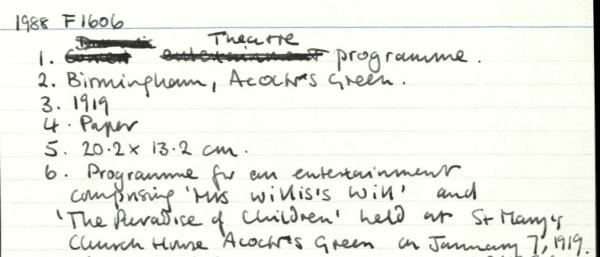 1988 F1606
Theatre
1. programme.
2. Birmingham, Acock's Green.
3. 1919
4. Paper
5. 20.2 x 13.2 cm.
6. Programme for an entertainment
comprising 'Mrs Willis's Will' and
'The Paradise of Children' held at St Mary's
Church House Acock's Green on January 7, 1919.